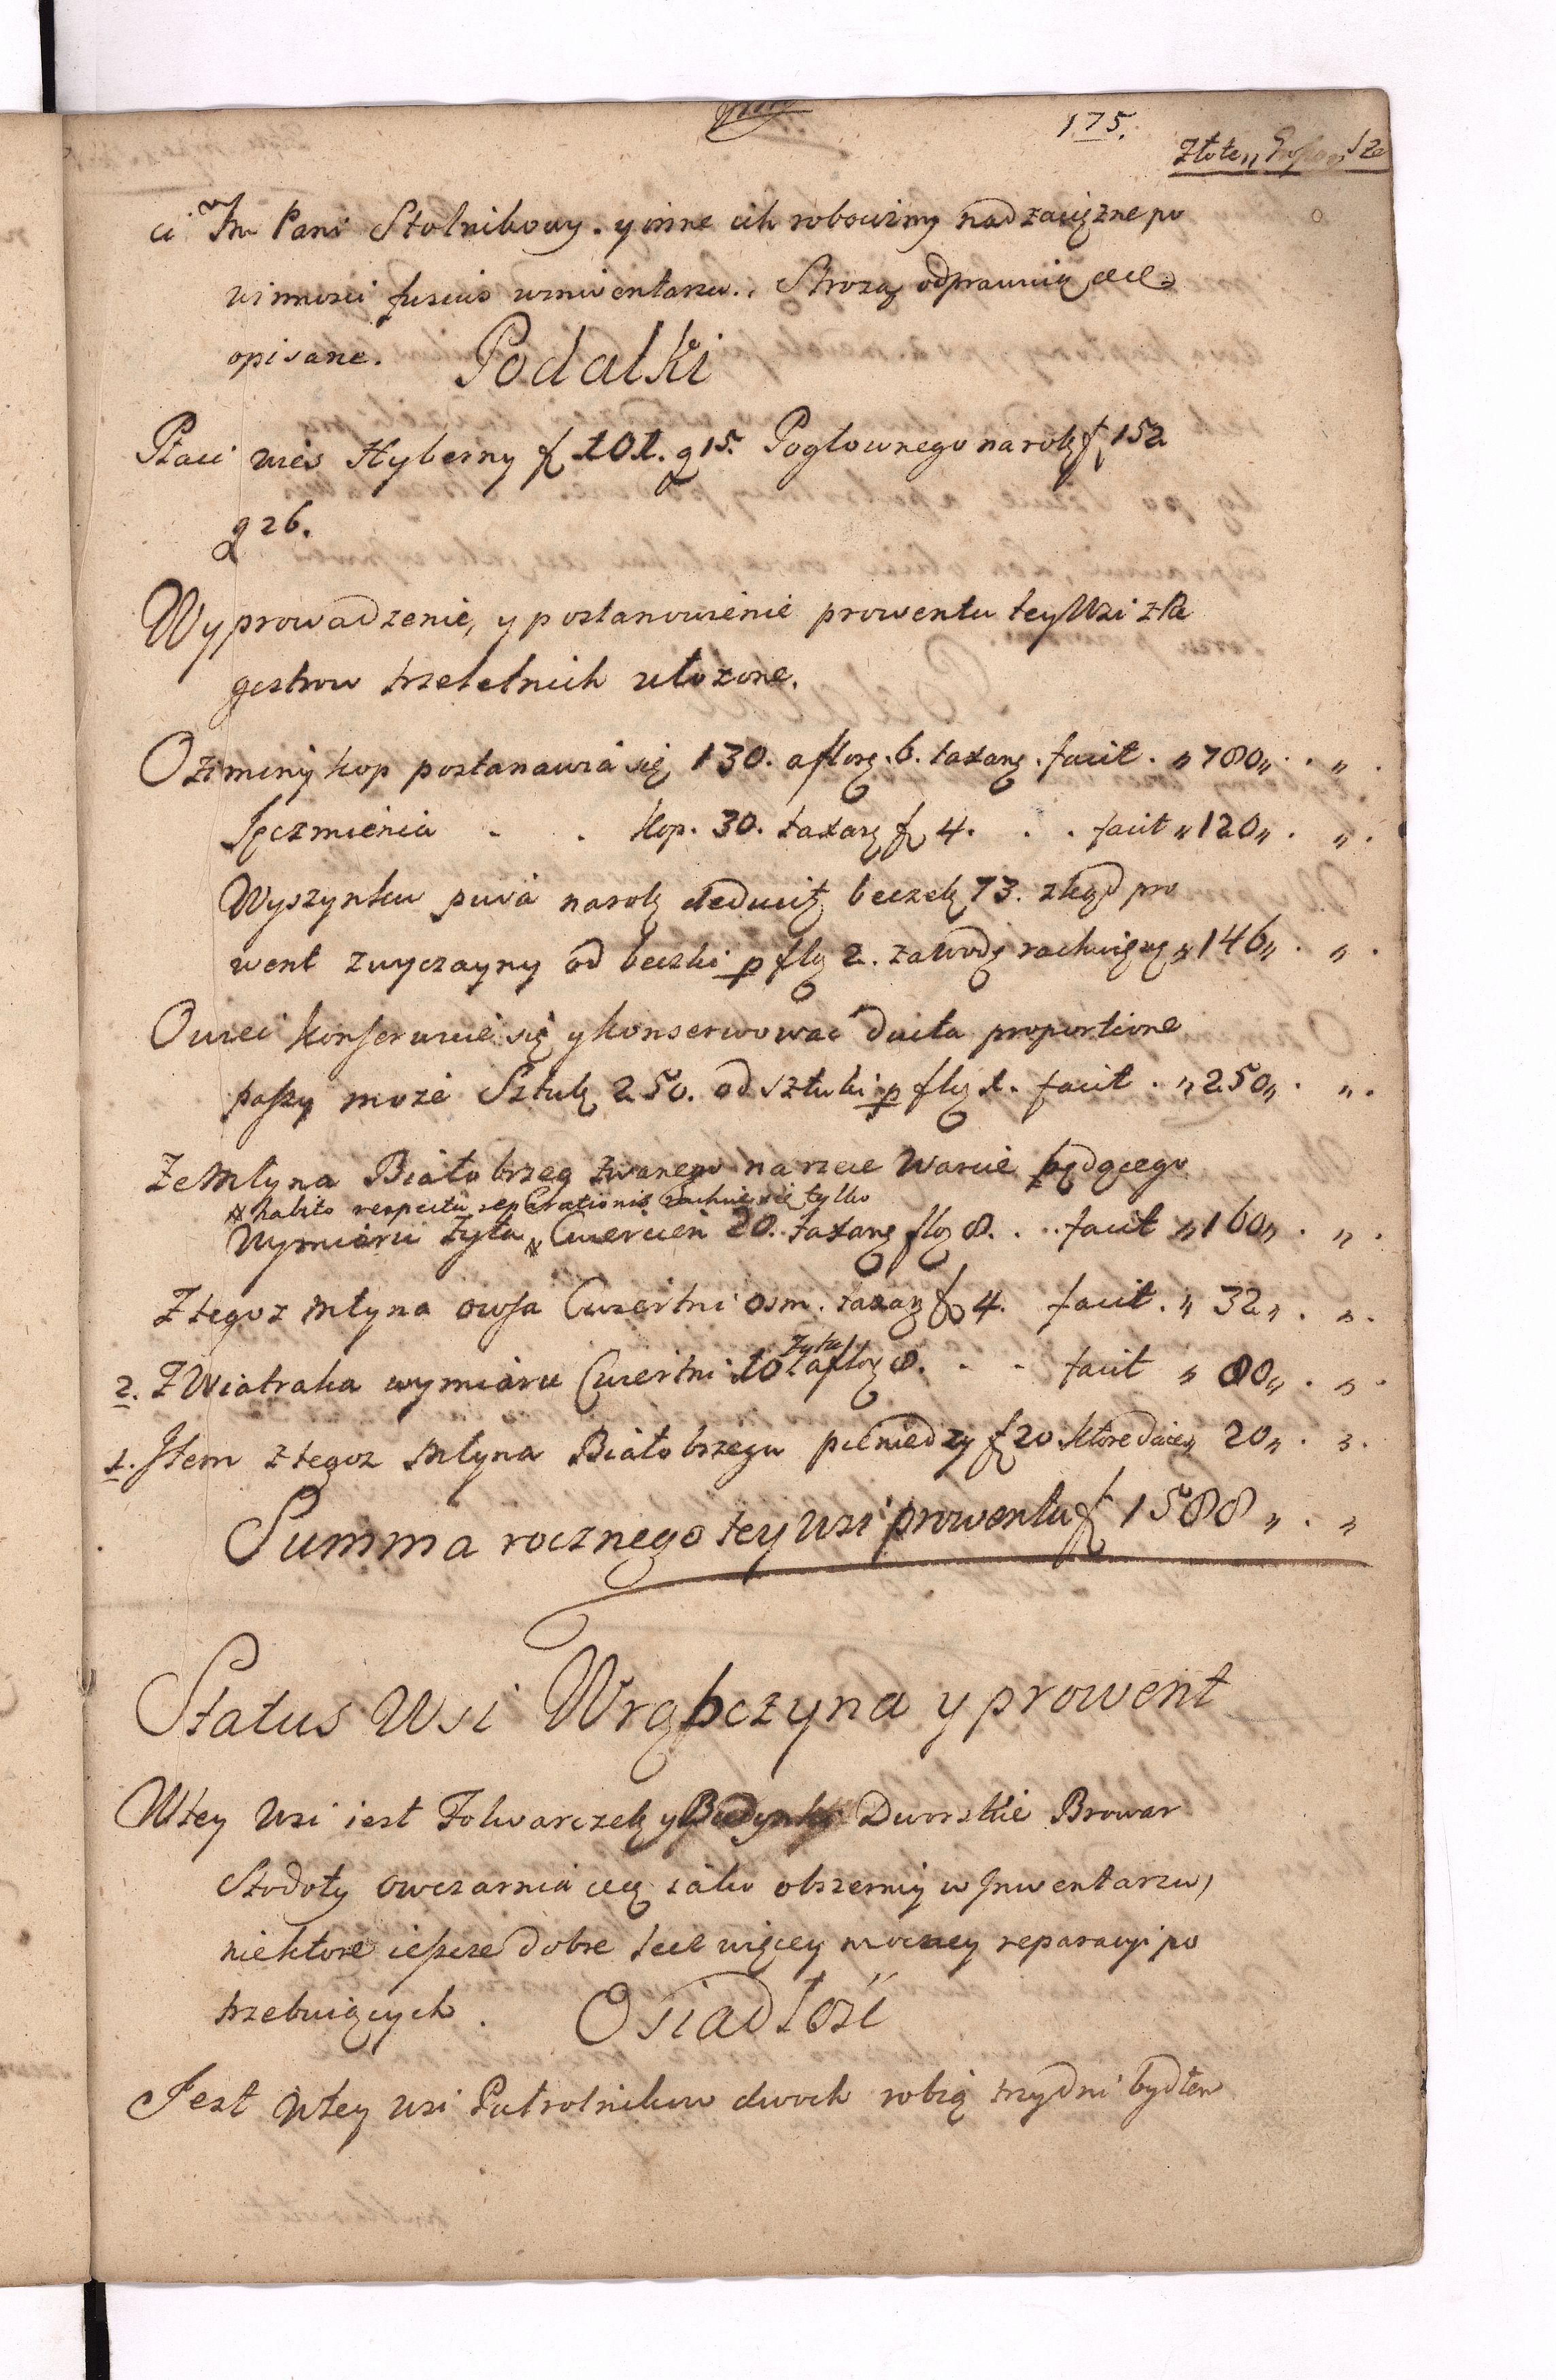 175.
Złote,, Grosze
ci Jm Pani Stolnikowy. y inne ich robocizny nad zaciężne po
winnosci fusius w inwentarzu. Strozą odprawuią etc
opisane. Podatki
Płaci wies Hyberny f 101. g 15. Pogłownego na rok f 152
g 26.
Wyprowadzenie, y postanowienie prowentu tey Wsi z Re
gestrow rzetelnich ułozone.
Oziminy kop postanawia się 130. a flor. 6. taxang. facit. „ 780 „ . „ .
Jęczmienia . . kop. 30. taxang f 4. . . facit „ 120 „ . „ .
Wyszynku piwa na rok deducit beczek 73. ztąd pro
went zwyczayny od beczki p flg 2. za wodę rachuiąc „ 146 „ . „ .
Owiec konserwuie się y konserwować ducta proportione
paszy moze Sztuk 250. od sztuki p flg 1. facit . „ 250 „ . „ .
Ze Młyna Białobrzeg zwanego na rzece Warcie będącego
# habito respectu reperationis rachuie się tylko
Wymiaru Zyta # Cwiercien 20. taxang flg 8. . . facit „ 160 „ . „ .
Z tegoz Młyna owsa Cwiertni osm. taxang f 4. facit. „ 32 „ . „ .
Zyta
2. Z Wiatraka wymiaru Cwiertni 10 a flor 8. - - facit „ 80 „ . „ .
1. Jtem z tegoz Młyna Białobrzegu pieniedzy f 20 ktore daie „ 20 „ . „ .
Summa rocznego tey wsi prowentu f 1588 „ . „
Status Wsi Wrąbczyna y prowent
W tey wsi iest Folwarczek y Budynki Dworskie Browar
Stodoły owczarnia etc iako obszerniy w Jnwentarzu,
niektore ieszcze dobre lecz więcey mocney reparacyi po
trzebuiących . Osiadłosć
Jest w tey wsi Pułrolnikow dwoch robią trzy dni bydłem